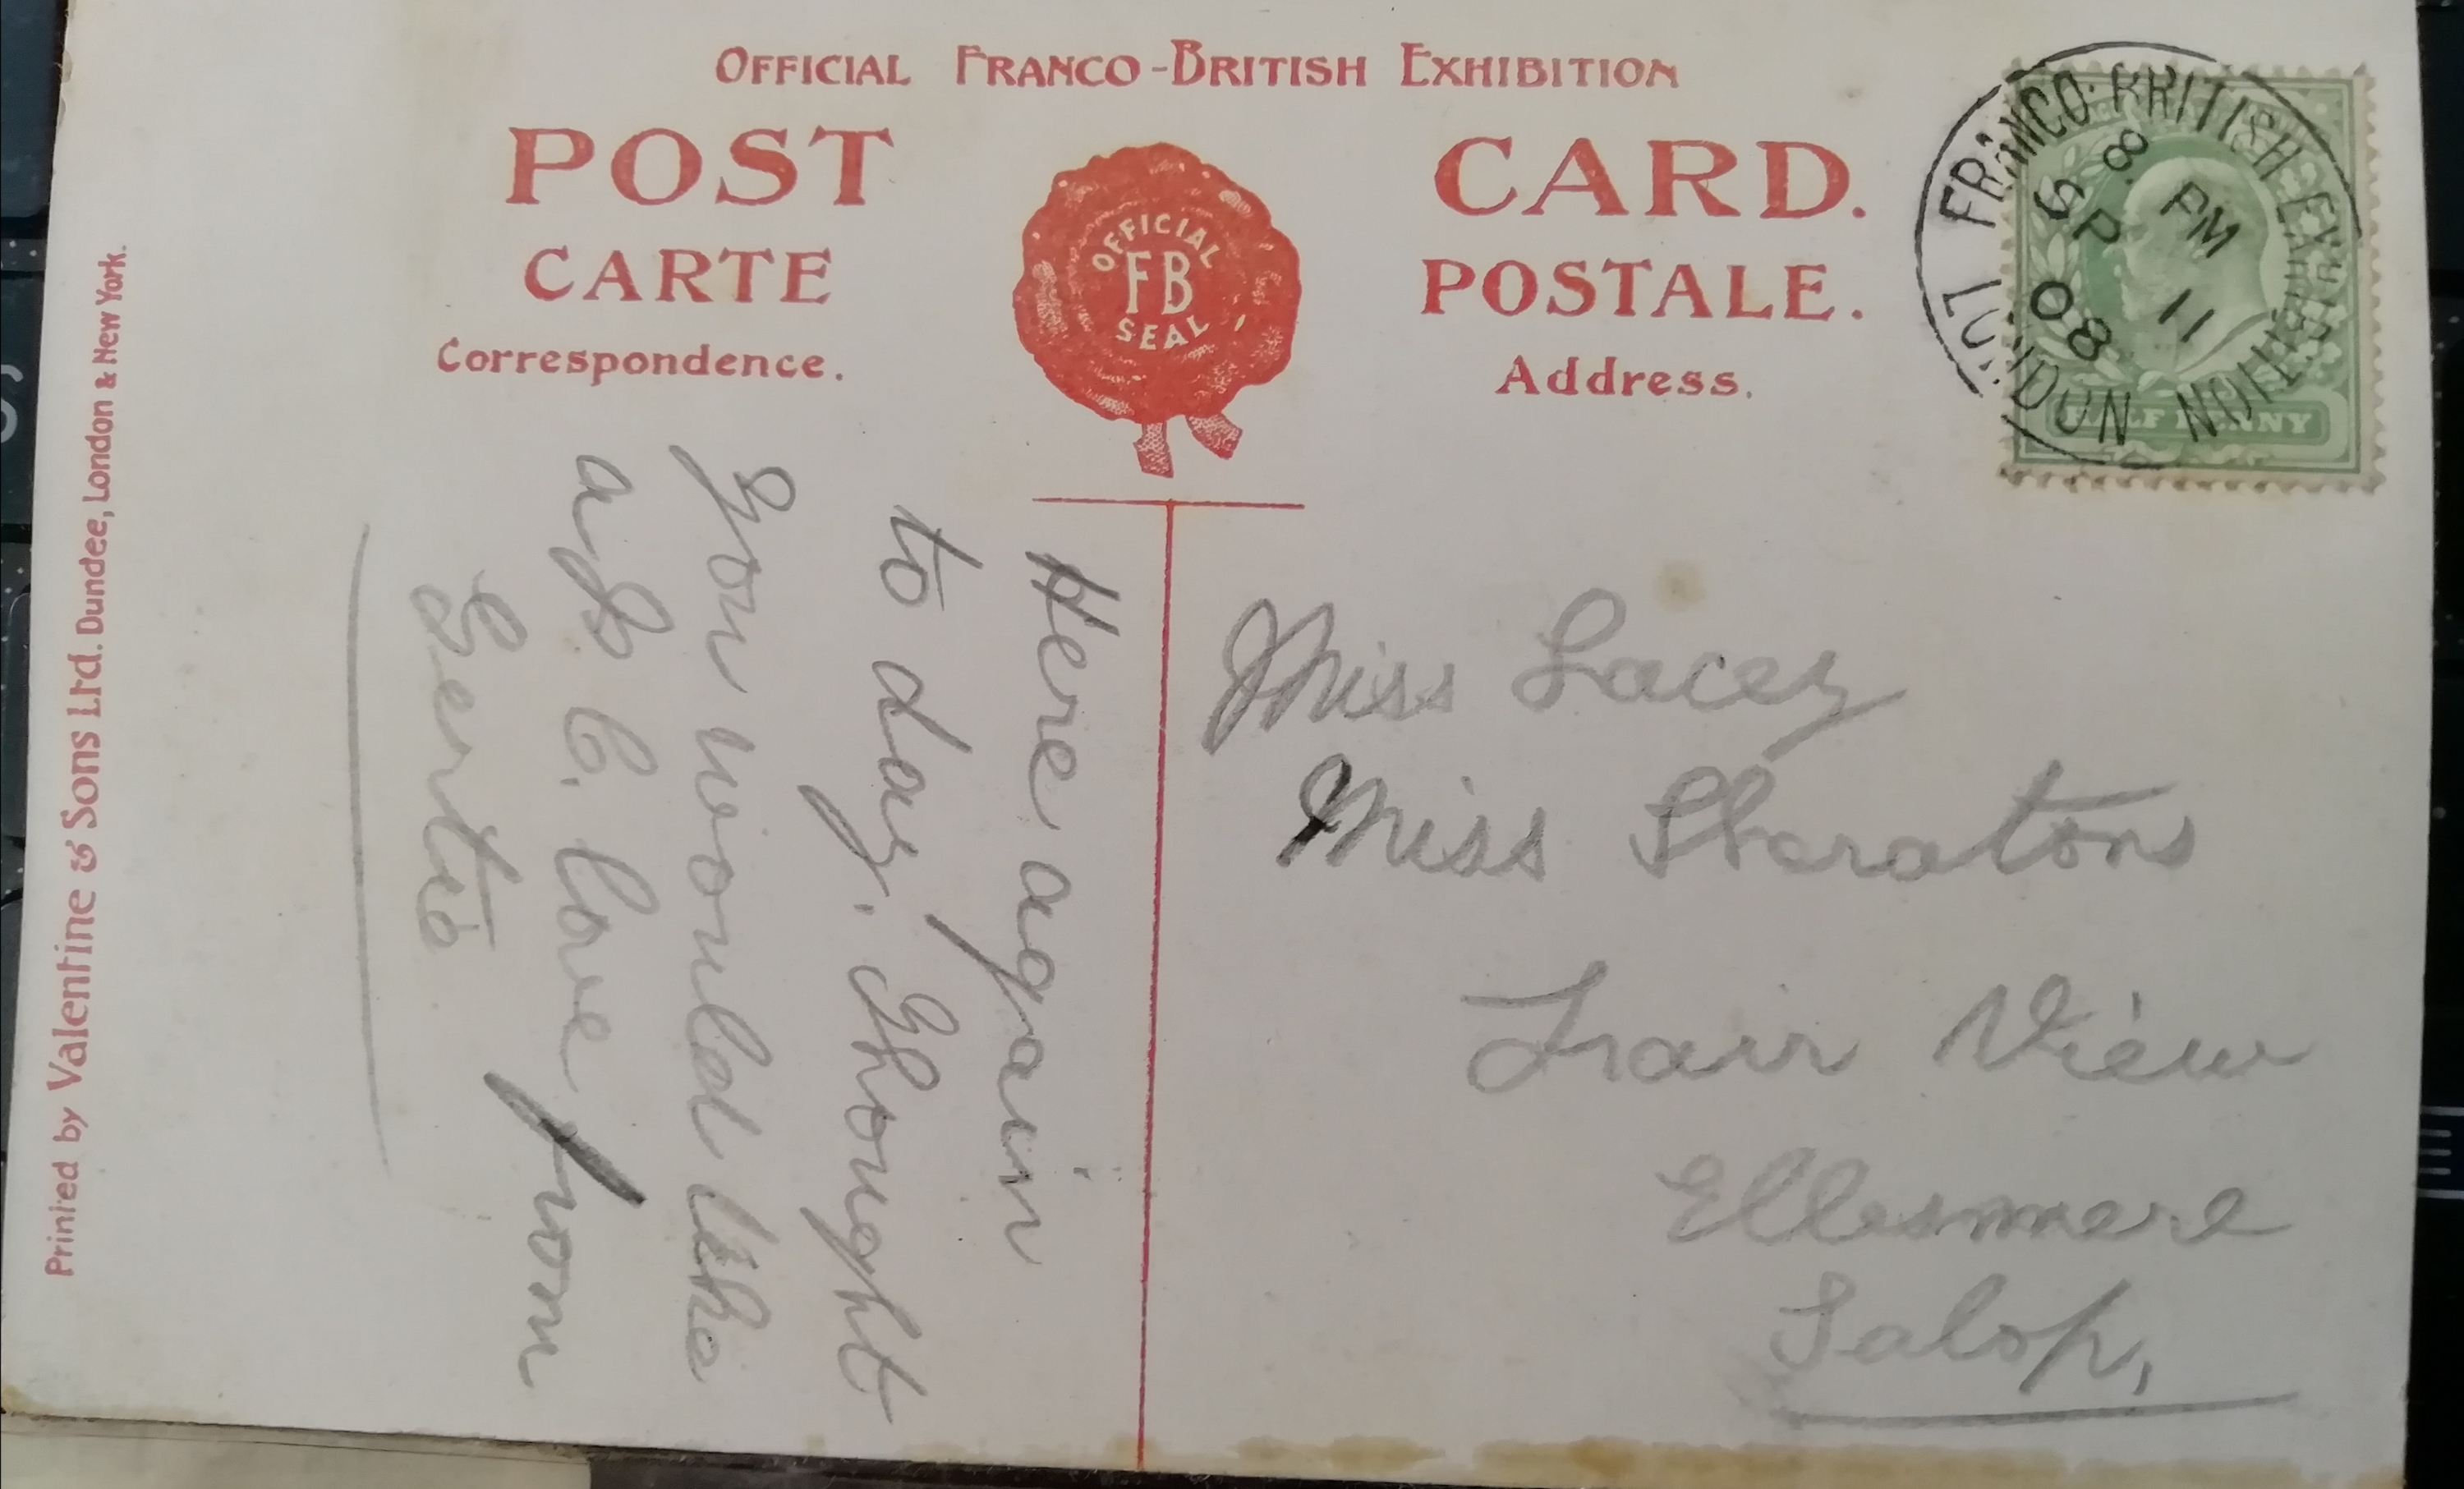 OFFICIAL FRANCO-BRITISH EXHIBITION
POST CARD.
CARTE POSTALE.
Correspondence. Address.
OFFICIAL
FB
SEAL
FRANCO-BRITISH EXHIBITION
LONDON
8 PM
SP 11
08
HALF PENNY
Here again
to day. Thought
you would like
a P. C. love from
Gertie
Miss Lacey
Miss Sharatons
Fair View
Ellesmere
Salop,
Printed by Valentine & Sons Ltd. Dundee, London & New York.